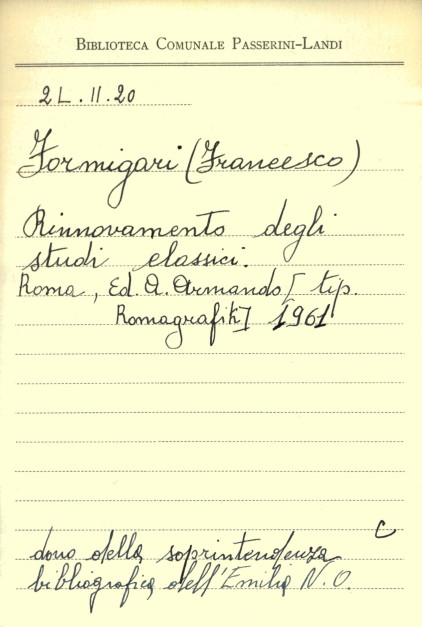 BIBLIOTECA COMUNALE PASSERINI-LANDI
2L.II.20
Formigari (Francesco)
Rinnovamento degli
studi classici.
Roma, Ed. A. Armando [tip.
Romagrafik] 1961
C
dono della soprintendenza
bibliografica dell'Emilia N.O.